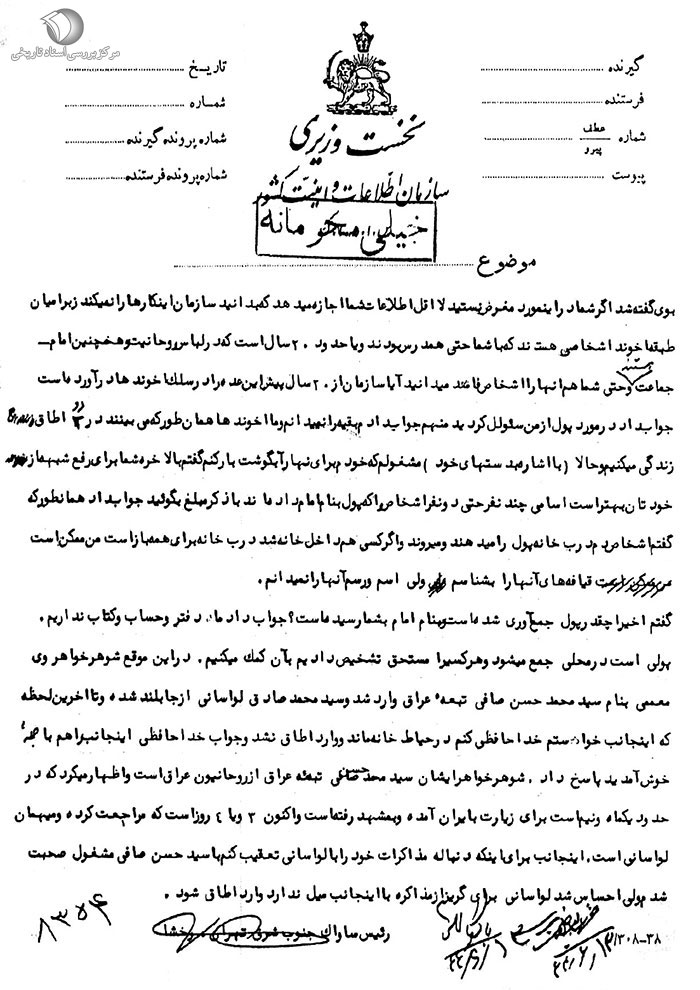 مرکز بررسی اسناد تاریخی
گیرنده
فرستنده
شماره عطف پیرو
پیوست
نخست وزیری
سازمان اطلاعات و امنیت کشور
خیلی محرمانه
تاریخ
شماره
شماره پرونده گیرنده
شماره پرونده فرستنده
موضوع
بوی گفته شد اگر شما در اینمورد مغرض نیستید لااقل اطلاعات شما اجازه میدهد که بدانید سازمان اینکارها را نمیکند زیرا میان
طبقه آخوند اشخاصی هستند که با شما حتی همدرس بودند و یا حدود ۲۰ سال است که در لباس روحانیت و همچنین امام
جماعت هستند و حتی شما هم آنها را اشخاص میدانید آیا سازمان از ۲۰ سال پیش این عده را در سلک آخوندها درآورده است
جواب داد در مورد پول از من سئوال کردید منهم جواب دادم بقیه را نمیدانم و ما آخوندها همانطور که می بینند در ۲ اطاق
زندگی میکنیم و حالا (با اشاره بدستهای خود) مشغولم که خودم برای نهار آبگوشت بار کنم گفتم بالاخره شما برای رفع شبهه از
خودتان بهتر است اسامی چند نفر حتی دو نفر اشخاص را که پول بنام امام داده اند با ذکر مبلغ بگوئید جواب داد همانطور که
گفتم اشخاص دم درب خانه پول را میدهند و میروند و اگر کسی هم داخل خانه شد درب خانه برای همه باز است من ممکن است
قیافه های آنها را بشناسم ولی اسم و رسم آنها را نمیدانم.
گفتم اخیرا چقدر پول جمع آوری شده است و بنام امام بشما رسیده است؟ جواب داد ما دفتر و حساب و کتاب نداریم.
پولی است در محلی جمع میشود و هر کسی را مستحق تشخیص دادیم بآن کمک میکنیم. در این موقع شوهر خواهر وی
معممی بنام سید محمد حسن صافی تبعه عراق وارد شد و سید محمد صادق لواسانی از جا بلند شده و تا آخرین لحظه
که اینجانب خواستم خداحافظی کنم در حیاط خانه ماند و وارد اطاق نشد و جواب خداحافظی اینجانب را هم با جمله
خوش آمدید پاسخ داد. شوهر خواهر ایشان سید محمد حسن صافی تبعه عراق از روحانیون عراق است و اظهار میکرد که در
حدود یکماه و نیم است برای زیارت بایران آمده و بمشهد رفته است و اکنون ۳ و یا ۴ روز است که مراجعت کرده و میهمان
لواسانی است. اینجانب برای اینکه دنباله مذاکرات خود را با لواسانی تعقیب کنم با سید حسن صافی مشغول صحبت
شدم ولی احساس شد لواسانی برای گریز از مذاکره با اینجانب میل ندارد وارد اطاق شود.
رئیس ساواک جنوب شرق تهران
۳۸-۳۰۸/